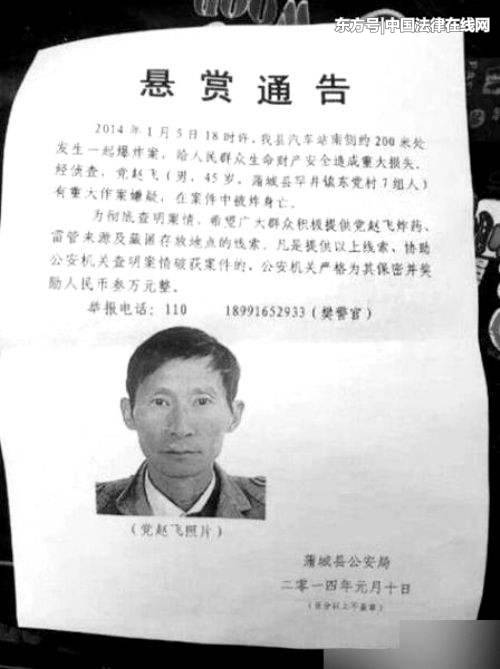 东方号|中国法律在线网
悬赏通告
2014年1月5日18时许，我县汽车站南侧约200米处
发生一起爆炸案，给人民群众生命财产安全造成重大损失。
经侦查，党赵飞（男，45岁，蒲城县罕井镇东党村7组人）
有重大作案嫌疑，在案件中被炸身亡。
为彻底查明案情，希望广大群众积极提供党赵飞炸药、
雷管来源及藏匿存放地点的线索。凡是提供以上线索、协助
公安机关查明案情破获案件的，公安机关严格为其保密并奖
励人民币叁万元整。
举报电话：110 18991652933（樊警官）
（党赵飞照片）
蒲城县公安局
二零一四年元月十日
（百分以上不盖章）